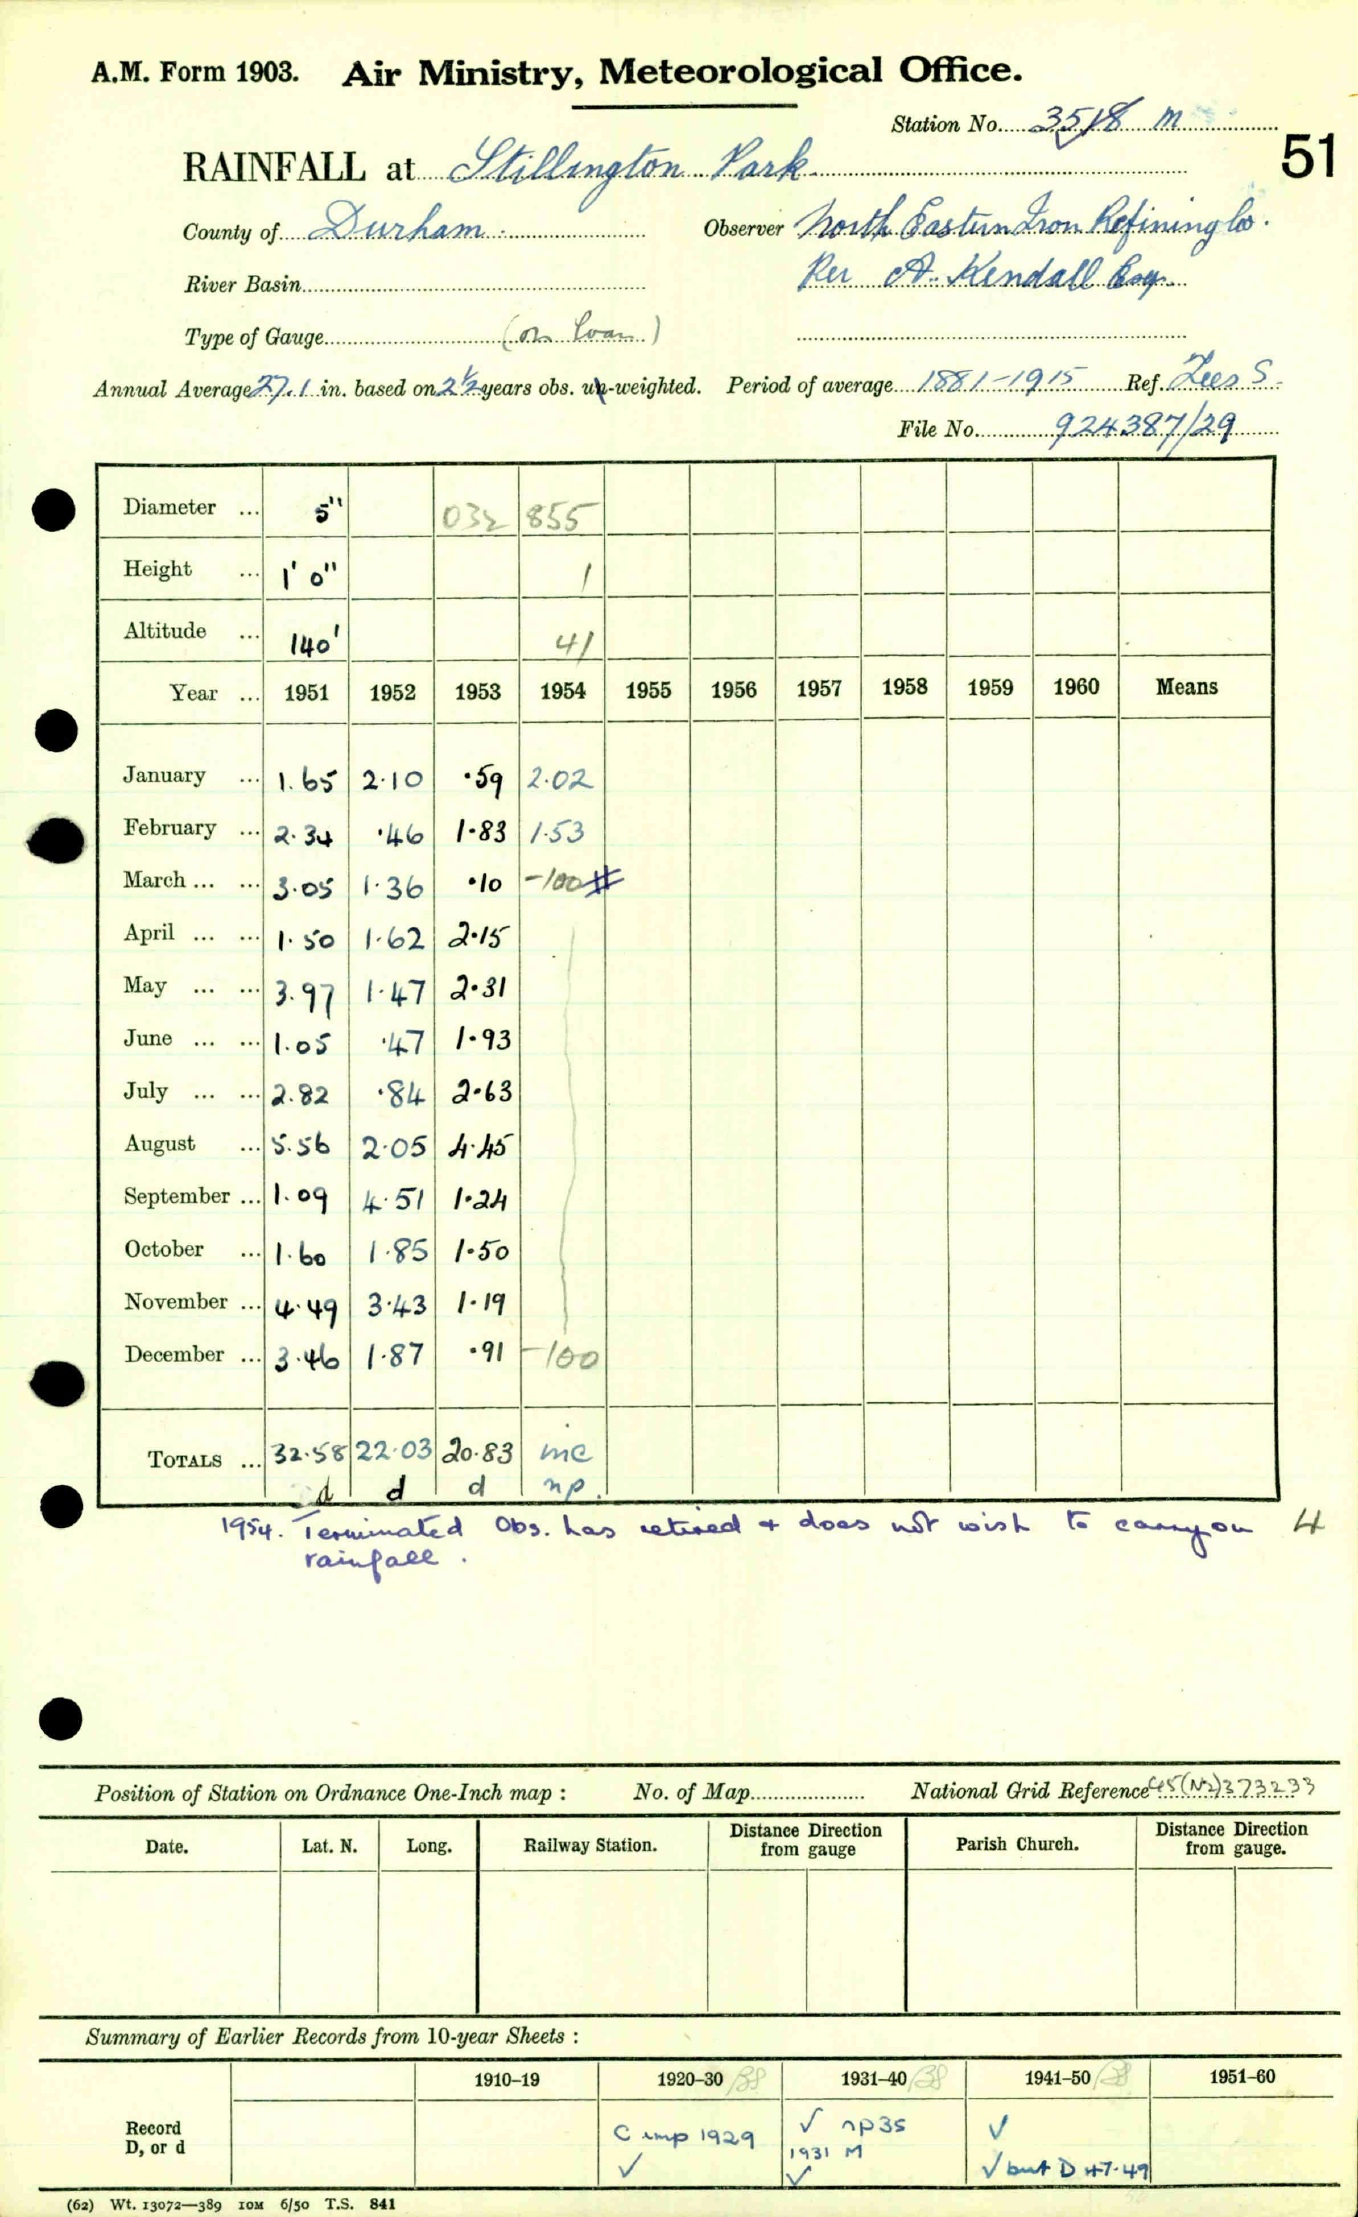 A.M. Form 1903. Air Ministry, Meteorological Office.
Station No. 3518 m
51
RAINFALL at Stillington Park
County of Durham. Observer North Eastern Iron Refining Co.
River Basin Per A. Kendall Esq.
Type of Gauge (on loan)
Annual Average 27.1 in. based on 2½ years obs. un-weighted. Period of average 1881-1915 Ref. Tees S.
File No. 924387/29
Diameter ... 5" 032 855
Height ... 1' 0" 1
Altitude ... 140' 41
Year ... 1951 1952 1953 1954 1955 1956 1957 1958 1959 1960 Means
January ... 1.65 2.10 .59 2.02
February ... 2.34 .46 1.83 1.53
March ... ... 3.05 1.36 .10 -100 #
April ... ... 1.50 1.62 2.15
May ... ... 3.97 1.47 2.31
June ... ... 1.05 .47 1.93
July ... ... 2.82 .84 2.63
August ... 5.56 2.05 4.45
September ... 1.09 4.51 1.24
October ... 1.60 1.85 1.50
November ... 4.49 3.43 1.19
December ... 3.46 1.87 .91 -100
TOTALS ... 32.58 22.03 20.83 inc
d d d np.
1954. Terminated Obs. has retired + does not wish to carry on 4
rainfall.
Position of Station on Ordnance One-Inch map : No. of Map National Grid Reference 45(NZ)373233
Date. Lat. N. Long. Railway Station. Distance from Direction gauge Parish Church. Distance from Direction gauge.
Summary of Earlier Records from 10-year Sheets :
1910–19 1920–30 1931–40 1941–50 1951–60
Record D, or d C imp 1929 ✓ ✓ np35 1931 M ✓ ✓ ✓ but D 47-49
(62) Wt. 13072—389 10M 6/50 T.S. 841